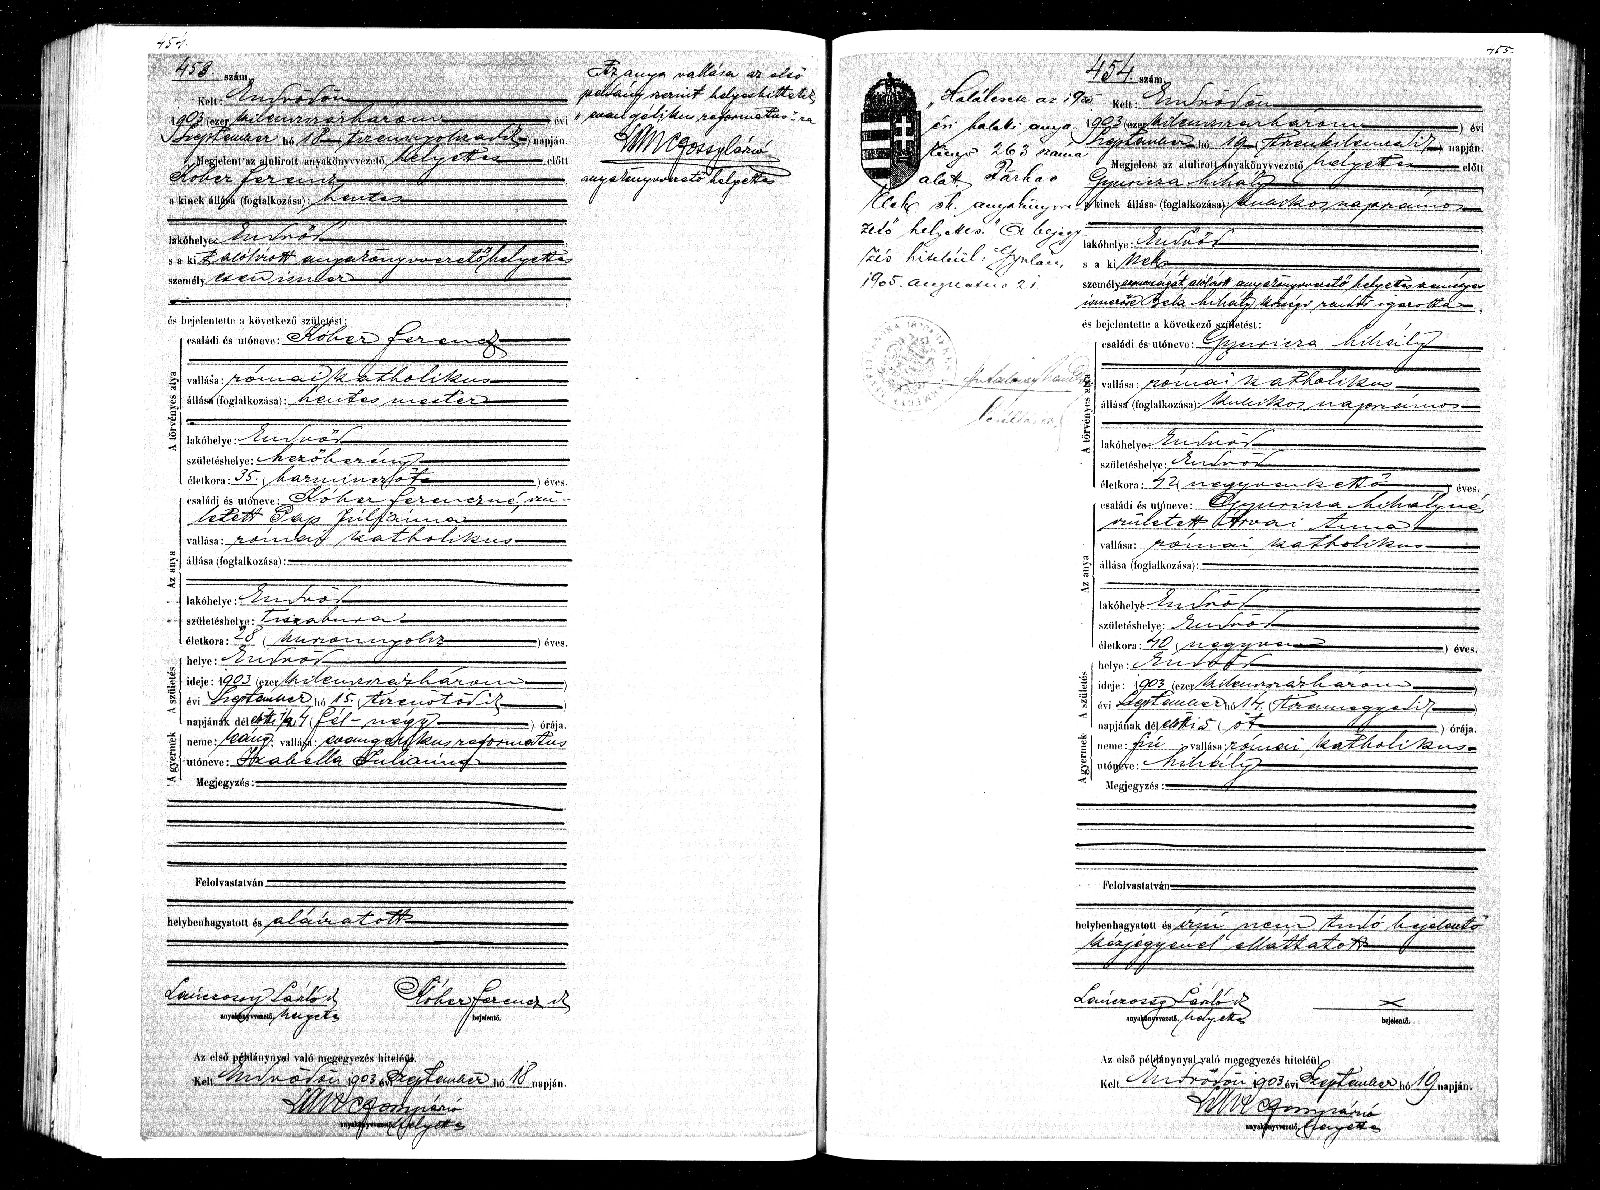 454.
453 szám.
Kelt: Endrődön
1903 (ezer kilenczszázhárom ) évi
Szeptember hó 18 (tizennyolczadik) napján.
Megjelent az alulirott anyakönyvvezető helyettes előtt
Kóber Ferencz
a kinek állása (foglalkozása): hentes
lakóhelye: Endrőd
s a ki t alólírott anyakönyvvezető helyettes
személyesen ismer
és bejelentette a következő születést:
A törvényes atya
családi és utóneve: Kóber Ferencz
vallása: római katholikus
állása (foglalkozása): hentes mester
lakóhelye: Endrőd
születéshelye: Mezőberény
életkora: 35. ( harminczöt ) éves.
Az anya
családi és utóneve: Kóber Ferenczné, szü-
letett Pap Juliánna
vallása: római katholikus
állása (foglalkozása):
lakóhelye: Endrőd
születéshelye: Tiszabura
életkora: 28 ( huszonnyolcz ) éves.
A születés
helye: Endrőd
ideje: 1903 (ezer kilenczszázhárom )
évi Szeptember hó 15. ( tizenötödik )
napjának dél előtti 1/2 4 ( fél-négy ) órája.
A gyermek
neme: leány; vallása: evangelikus reformatus
utóneve: Izabella Julianna
Megjegyzés:
Felolvastatván
helybenhagyatott és aláiratott
Lánczossy László anyakönyvvezető. helyettes
Kóber Ferencz bejelentő.
Az első példánynyal való megegyezés hiteléül.
Kelt Endrődön 1903 évi Szeptember hó 18 napján.
anyakönyvvezető. helyettes
Az anya vallása az első
példány szerint helyesbittetett
„evangelikus reformatus"-ra
anyakönyvvezető helyettes
455.
„Haláleset az 1905
évi halotti anya-
könyv 263 száma
alatt. Párkas
Elek sk. anyakönyvve-
zető helyettes." A bejegy
zés hiteléül: Gyulán,
1905. augusztus 21
454. szám.
Kelt: Endrődön
1903 (ezer kilenczszázhárom ) évi
Szeptember hó 19 ( tizenkilenczedik ) napján.
Megjelent az alulirott anyakönyvvezető helyettes előtt
Gyuricza Mihály
a kinek állása (foglalkozása): kubikos napszámos
lakóhelye: Endrőd
s a ki nek
személyazonosságát, alólírott anyakönyvvezető helyettes személyes
ismerőse Béla Mihály községi rendőr igazolta
és bejelentette a következő születést:
A törvényes atya
családi és utóneve: Gyuricza Mihály
vallása: római katholikus
állása (foglalkozása): kubikos napszámos
lakóhelye: Endrőd
születéshelye: Endrőd
életkora: 42 ( negyvenkettő ) éves.
Az anya
családi és utóneve: Gyuricza Mihályné
született Árvai Anna
vallása: római katholikus
állása (foglalkozása):
lakóhelye: Endrőd
születéshelye: Endrőd
életkora: 40 ( negyven ) éves.
A születés
helye: Endrőd
ideje: 1903 (ezer kilenczszázhárom )
évi Szeptember hó 14. ( tizennegyedik )
napjának dél előtti 5 ( öt ) órája.
A gyermek
neme: fiú vallása: római katholikus
utóneve: Mihály
Megjegyzés:
Felolvastatván
helybenhagyatott és írni nem tudó bejelentő
kézjegyével elláttatott
Lánczossy László anyakönyvvezető. helyettes
x bejelentő.
Az első példánynyal való megegyezés hiteléül
Kelt Endrődön 1903 évi Szeptember hó 19 napján.
anyakönyvvezető. helyettes